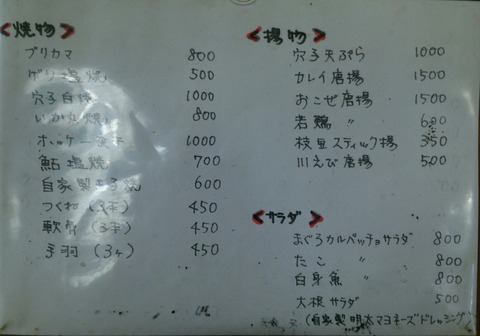 <焼物>
ブリカマ 800
ゲソ塩焼 500
穴子白焼 1000
いか丸焼 800
ホッケ 1000
鮎塩焼 700
自家製玉子焼 600
つくね(3本) 450
軟骨(3本) 450
手羽(3ヶ) 450
<揚物>
穴子天ぷら 1000
カレイ唐揚 1500
おこぜ唐揚 1500
若鶏 〃 600
枝豆スティック揚 350
川えび唐揚 500
<サラダ>
まぐろカルパッチョサラダ 800
たこ 〃 800
白身魚 〃 800
大根サラダ 500
(自家製明太マヨネーズドレッシング)